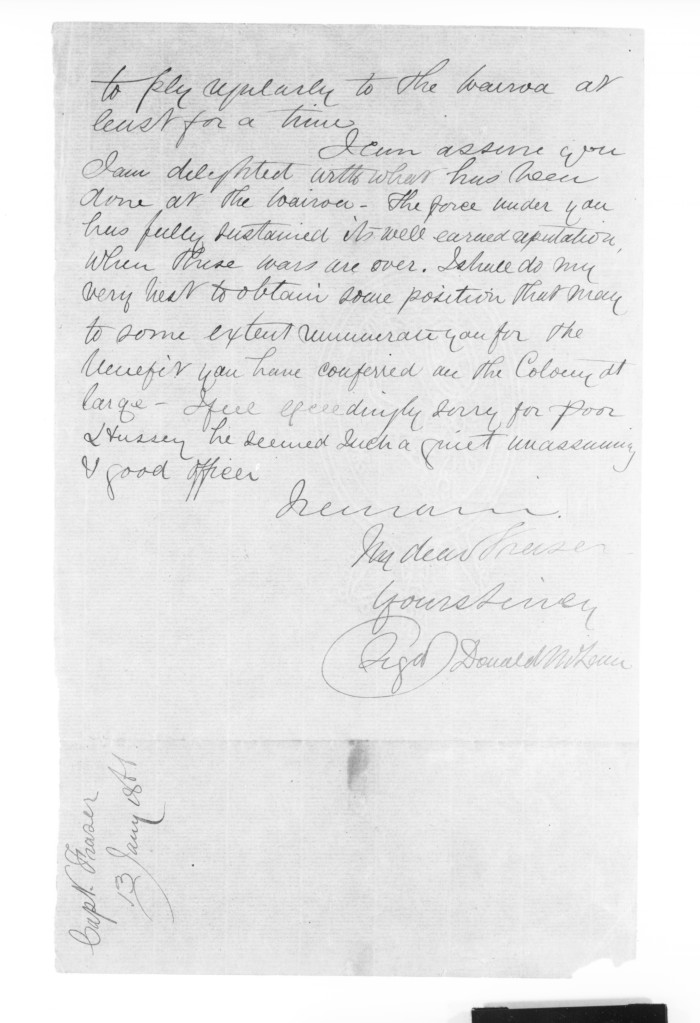 to ply regularly to the Wairoa at
least for a time
I can assure you
I am delighted with what has been
done at the Wairoa - The force under you
has fully sustained its well earned reputation,
When these wars are over. I shall do my
very best to obtain some position that may
to some extent remunerate you for the
benefit you have conferred on the Colony at
large - I feel exceedingly sorry for poor
Hussey he seemed such a quiet unassuming
& good officer
I remain.
My dear Fraser
Yours sincey
Sigd Donald McLean
Capt. Fraser
13 Jany